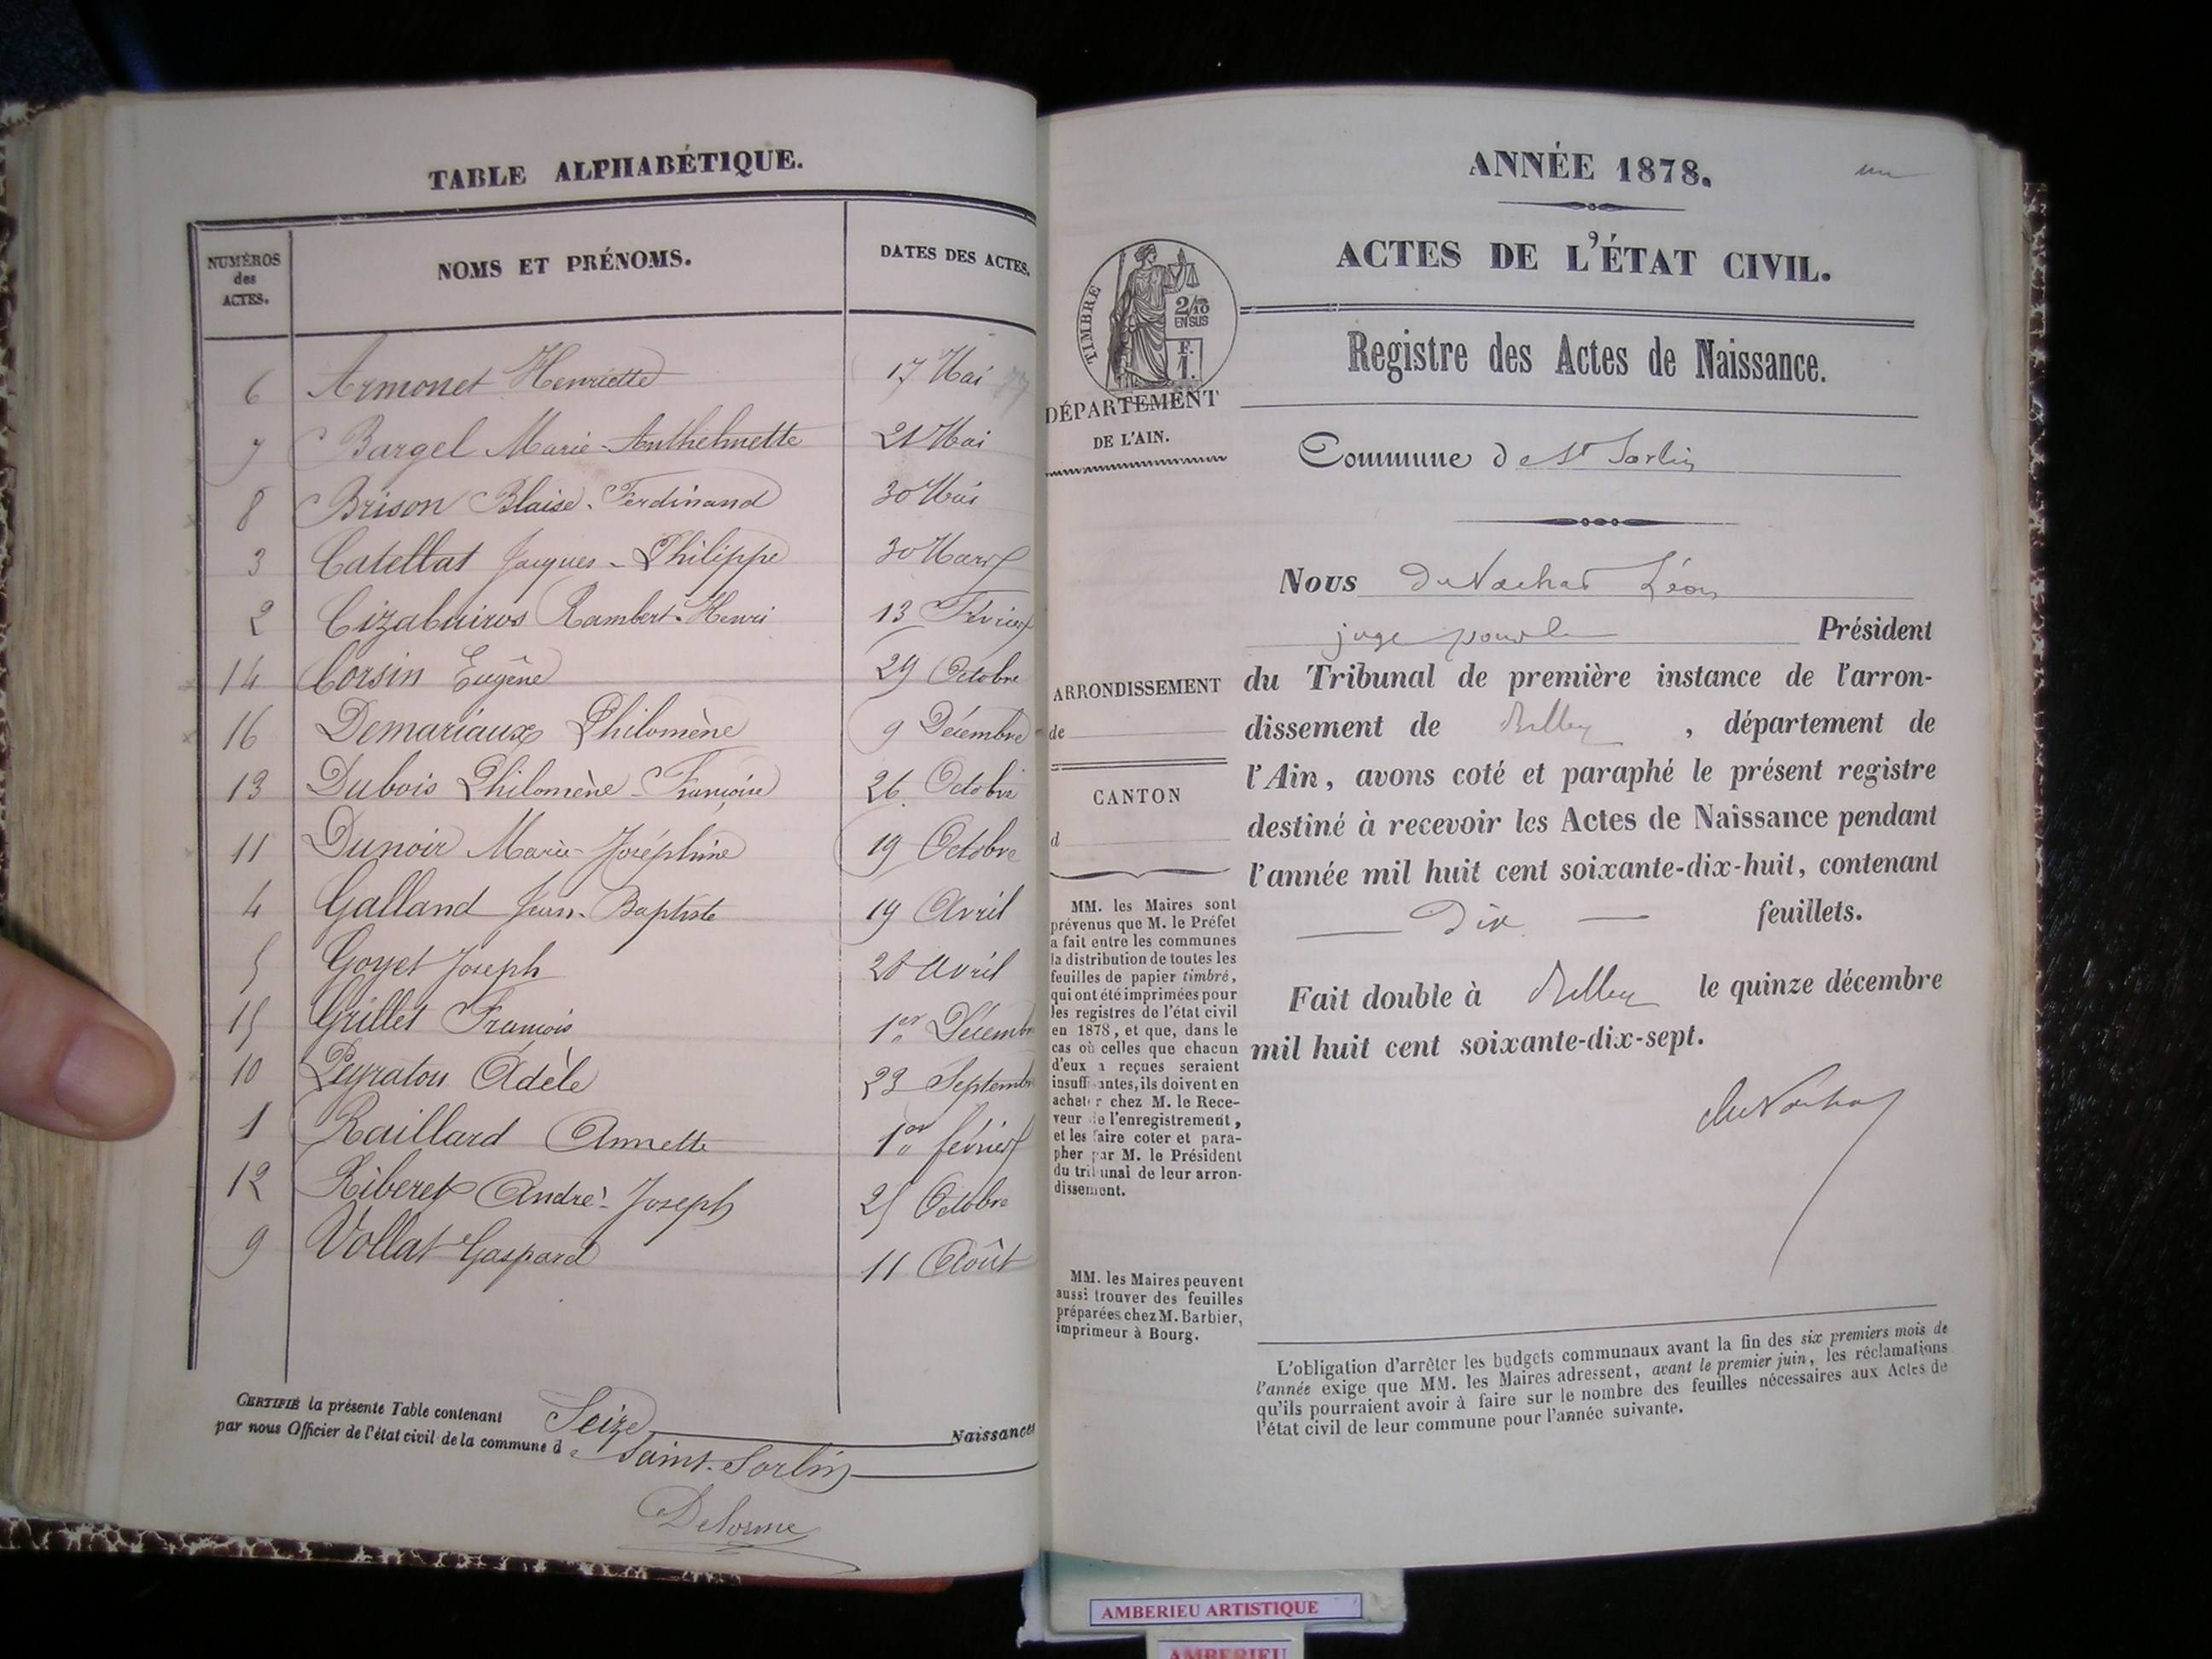 TABLE ALPHABÉTIQUE.
NUMÉROS des ACTES. NOMS ET PRÉNOMS. DATES DES ACTES.
6 Armonet Henriette 17 Mai 77
7 Bargel Marie-Anthelmette 21 Mai
8 Brison Blaise-Ferdinand 30 Mai
3 Catellat Jacques-Philippe 30 Mars
2 Rambert-Henri 13 Février
14 Corsin Eugêne 29 Octobre
16 Demariaux Philomène 9 Décembre
13 Dubois Philomène-Françoise 26 Octobre
11 Dunoir Marie-Joséphine 19 Octobre
4 Galland Jean-Baptiste 19 Avril
5 Goyet Joseph 28 Avril
15 Grillet François 1er Décembre
10 Peyraton Adèle 23 Septembre
1 Raillard Annette 1er février
12 Riberet André-Joseph 25 Octobre
9 Vollat Gaspard 11 Août
CERTIFIÉ la présente Table contenant Seize Naissances
par nous Officier de l'état civil de la commune de Saint-Sorlin
Delorme
ANNÉE 1878. un
ACTES DE L'ÉTAT CIVIL.
TIMBRE
2/10
EN SUS
F.
1.
Registre des Actes de Naissance.
DÉPARTEMENT
DE L'AIN.
Commune de St Sorlin
Nous Du Nachat Léon
juge pour le Président
du Tribunal de première instance de l'arron-
dissement de Belley, département de
l'Ain, avons coté et paraphé le présent registre
destiné à recevoir les Actes de Naissance pendant
l'année mil huit cent soixante-dix-huit, contenant
Dix feuillets.
Fait double à Belley le quinze décembre
mil huit cent soixante-dix-sept.
ARRONDISSEMENT
de
CANTON
d
MM. les Maires sont
prévenus que M. le Préfet
a fait entre les communes
la distribution de toutes les
feuilles de papier timbré,
qui ont été imprimées pour
les registres de l'état civil
en 1878, et que, dans le
cas où celles que chacun
d'eux a reçues seraient
insuffisantes, ils doivent en
acheter chez M. le Rece-
veur de l'enregistrement,
et les faire coter et para-
pher par M. le Président
du tribunal de leur arron-
dissement.
MM. les Maires peuvent
aussi trouver des feuilles
préparées chez M. Barbier,
imprimeur à Bourg.
L'obligation d'arrêter les budgets communaux avant la fin des six premiers mois de
l'année exige que MM. les Maires adressent, avant le premier juin, les réclamations
qu'ils pourraient avoir à faire sur le nombre des feuilles nécessaires aux Actes de
l'état civil de leur commune pour l'année suivante.
AMBERIEU ARTISTIQUE
AMBERIEU